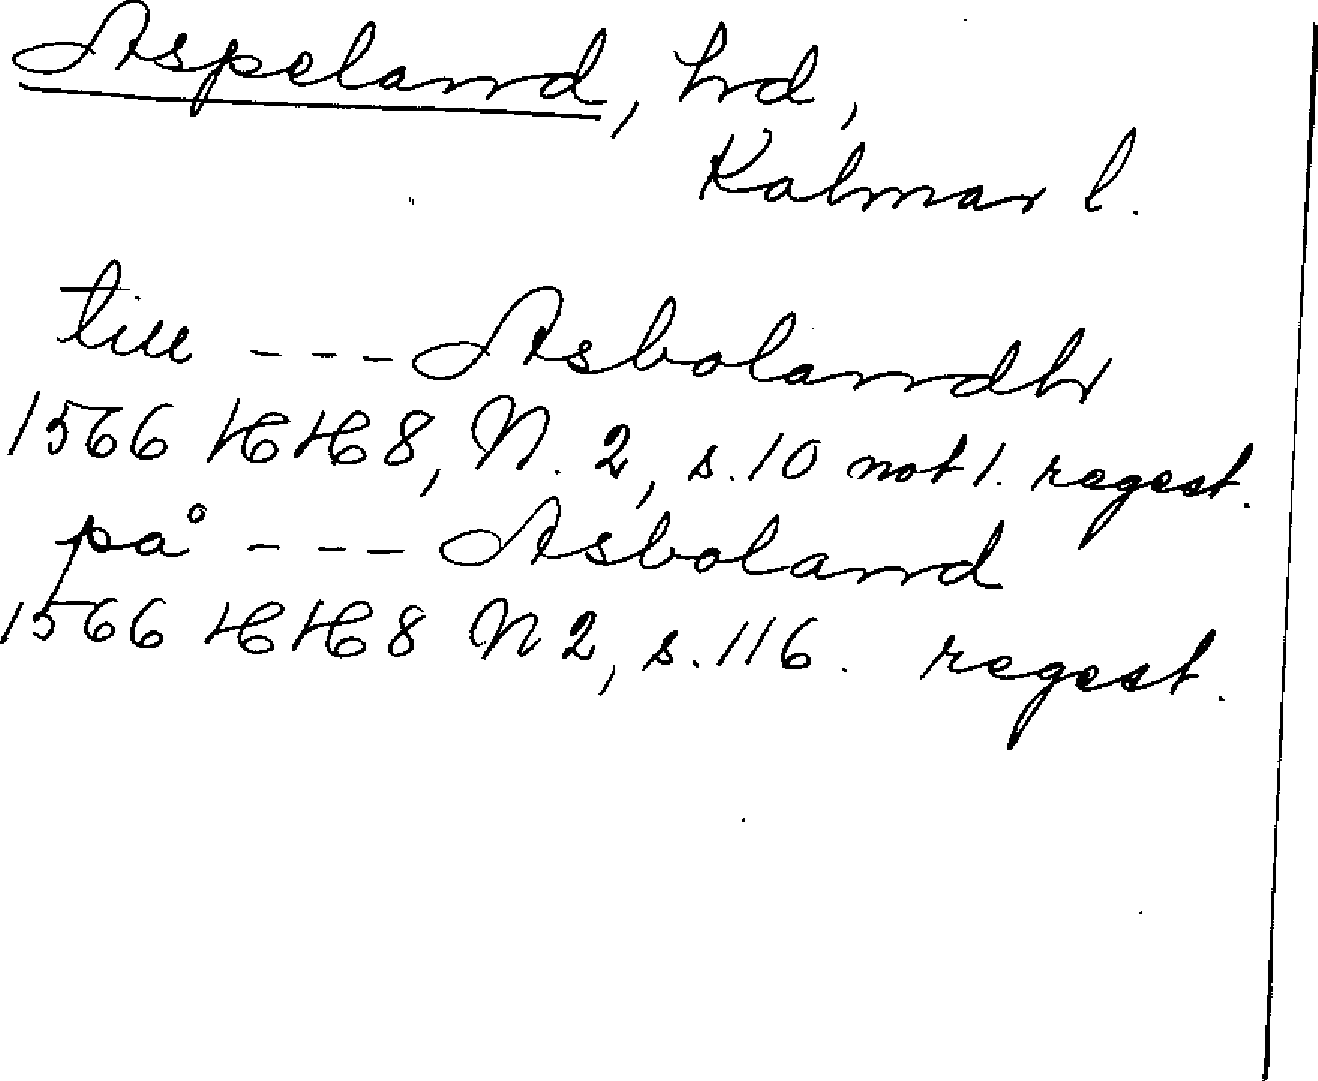 Aspeland, hd,
Kalmar l.
till --- Asbolandh
1566 HH 8, N. 2, s. 10 not 1. regest.
på --- Asboland
1566 HH 8 N 2, s. 116. regest.